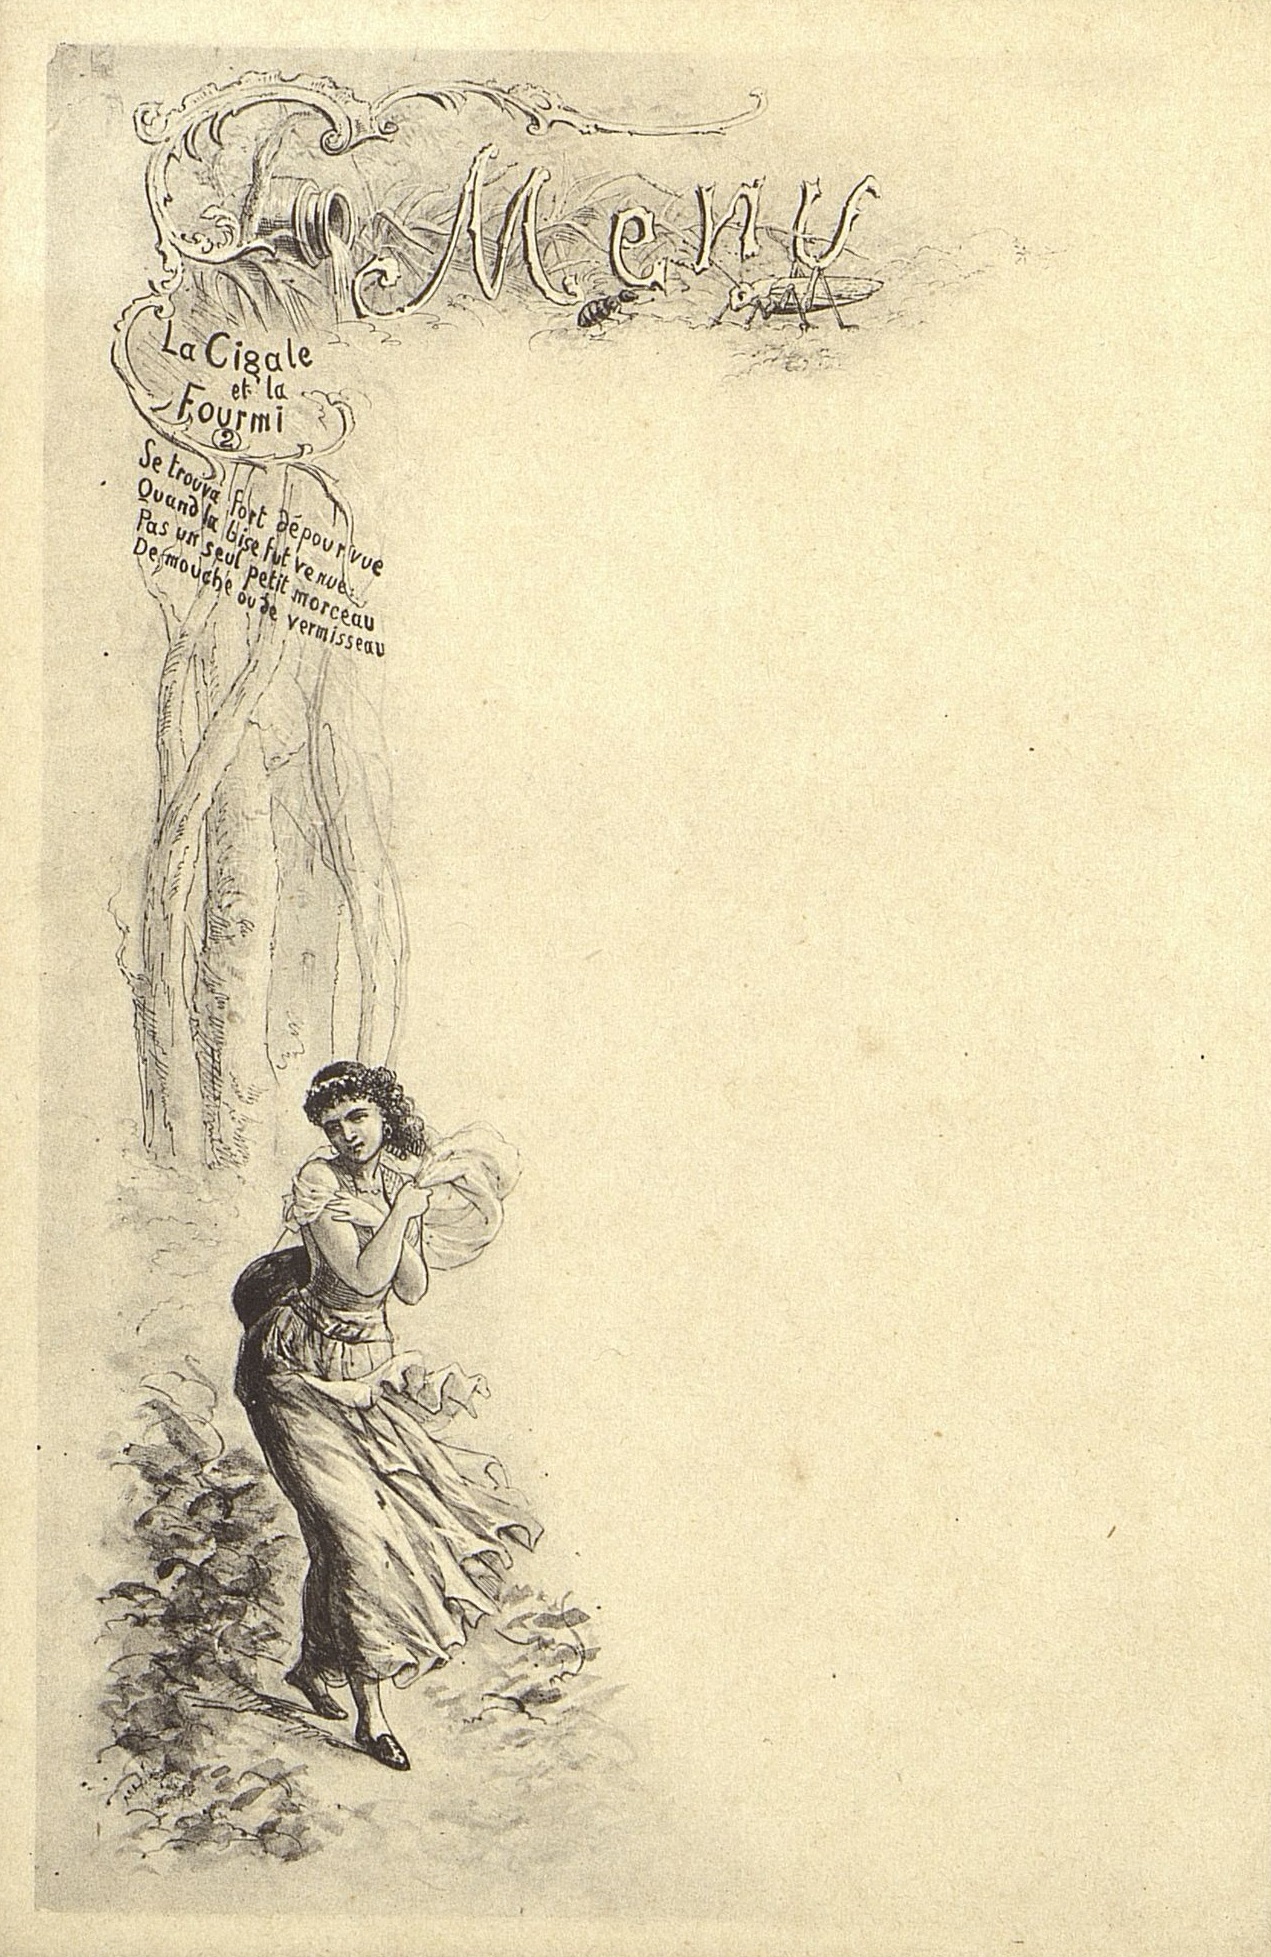 Menu
La Cigale
et la
Fourmi
2
Se trouva fort dépourvue
Quand la bise fut venue:
Pas un seul petit morceau
De mouche ou de vermisseau